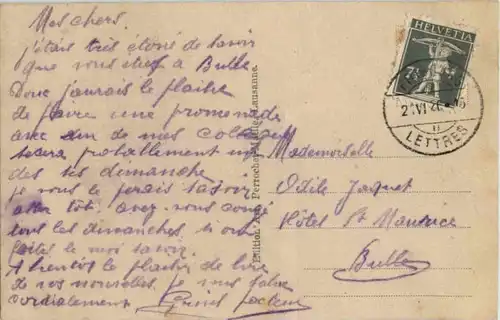 Mes chers.
j'étais très étoné de savoir
que vous êtes à Bulle
Donc j'aurais le plaisir
de faire une promenade
avec un de mes
sera probablement un
des ces dimanche
je vous le ferais savoir
tôt. avez-vous congé
tous les dimanches, si oui
faites le moi savoir.
A bientôt le plaisir de lire
de vos nouvelles je vous salue
cordialement
Edition Perrochet Lausanne.
HELVETIA
7½
21.VI.26
LETTRES
Mademoiselle
Odile Jaquet
Hôtel St Maurice
Bulle